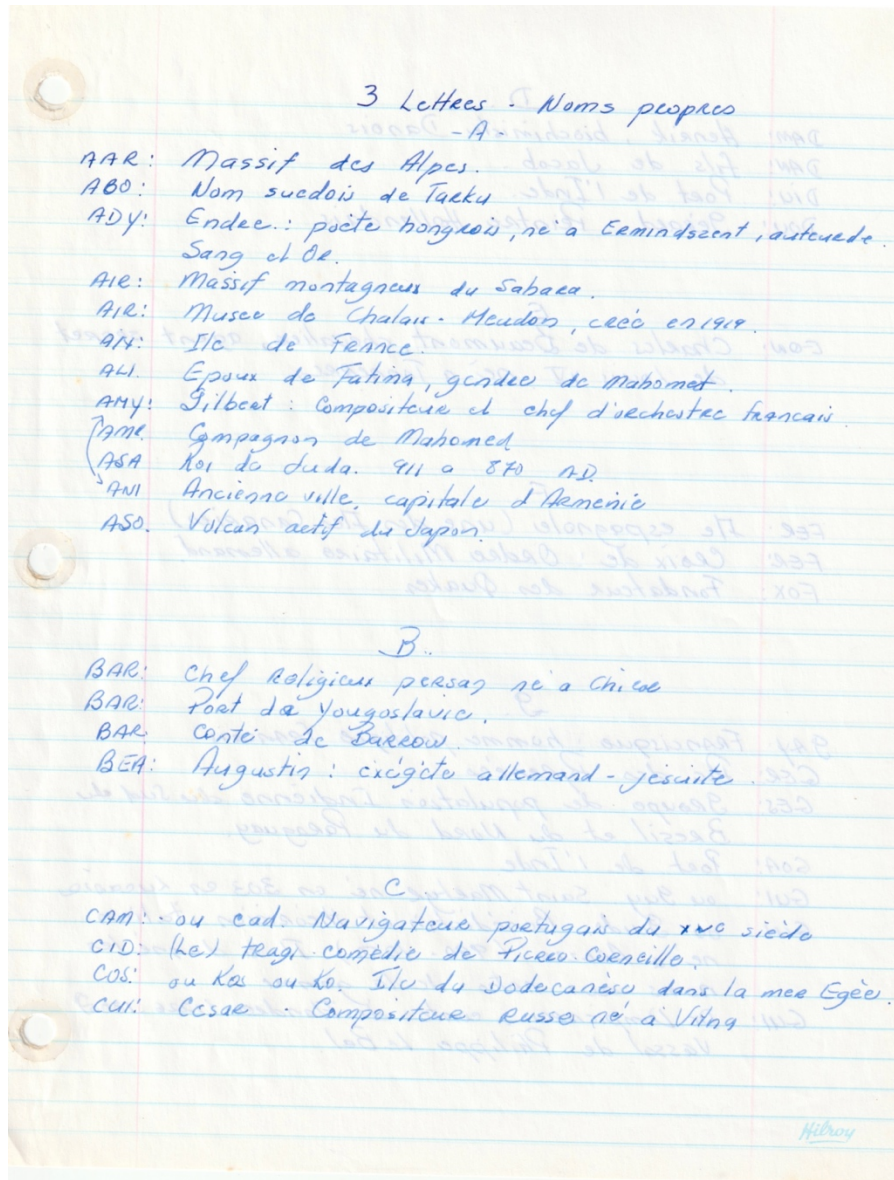 3 Lettres - Noms propres
- A -
AAR: Massif des Alpes.
ABO: Nom suedois de Turku
ADY: Endre : poète hongrois, né a Ermindszent, auteur de
Sang et Or.
AIR: Massif montagneux du Sahara.
AIR: Musée de Chalais - Meudon, créé en 1919.
AIX: Ile de France.
ALI. Epoux de Fatima, gendre de Mahomet.
AMY: Gilbert : Compositeur et chef d'orchestre francais
AMR. Compagnon de Mahomed
ASA Roi de Juda. 911 a 870 AD.
ANI Ancienne ville, capitale d'Armenie
ASO. Vulcan actif du Japon.
B.
BAR: Chef Religieux persan né a Chiroe
BAR: Port de Yougoslavie.
BAR Conté de Barrow.
BEA: Augustin : exégète allemand - jésuite.
C
CAM: ou cad. Navigateur portugais du xve siècle
CID: (Le) tragi-comédie de Pierre Corneille.
COS: ou Kos ou Ko. Ile du Dodecanèse dans la mer Egée.
CUI: Cesar - Compositeur Russe né a Vilna
Hilroy